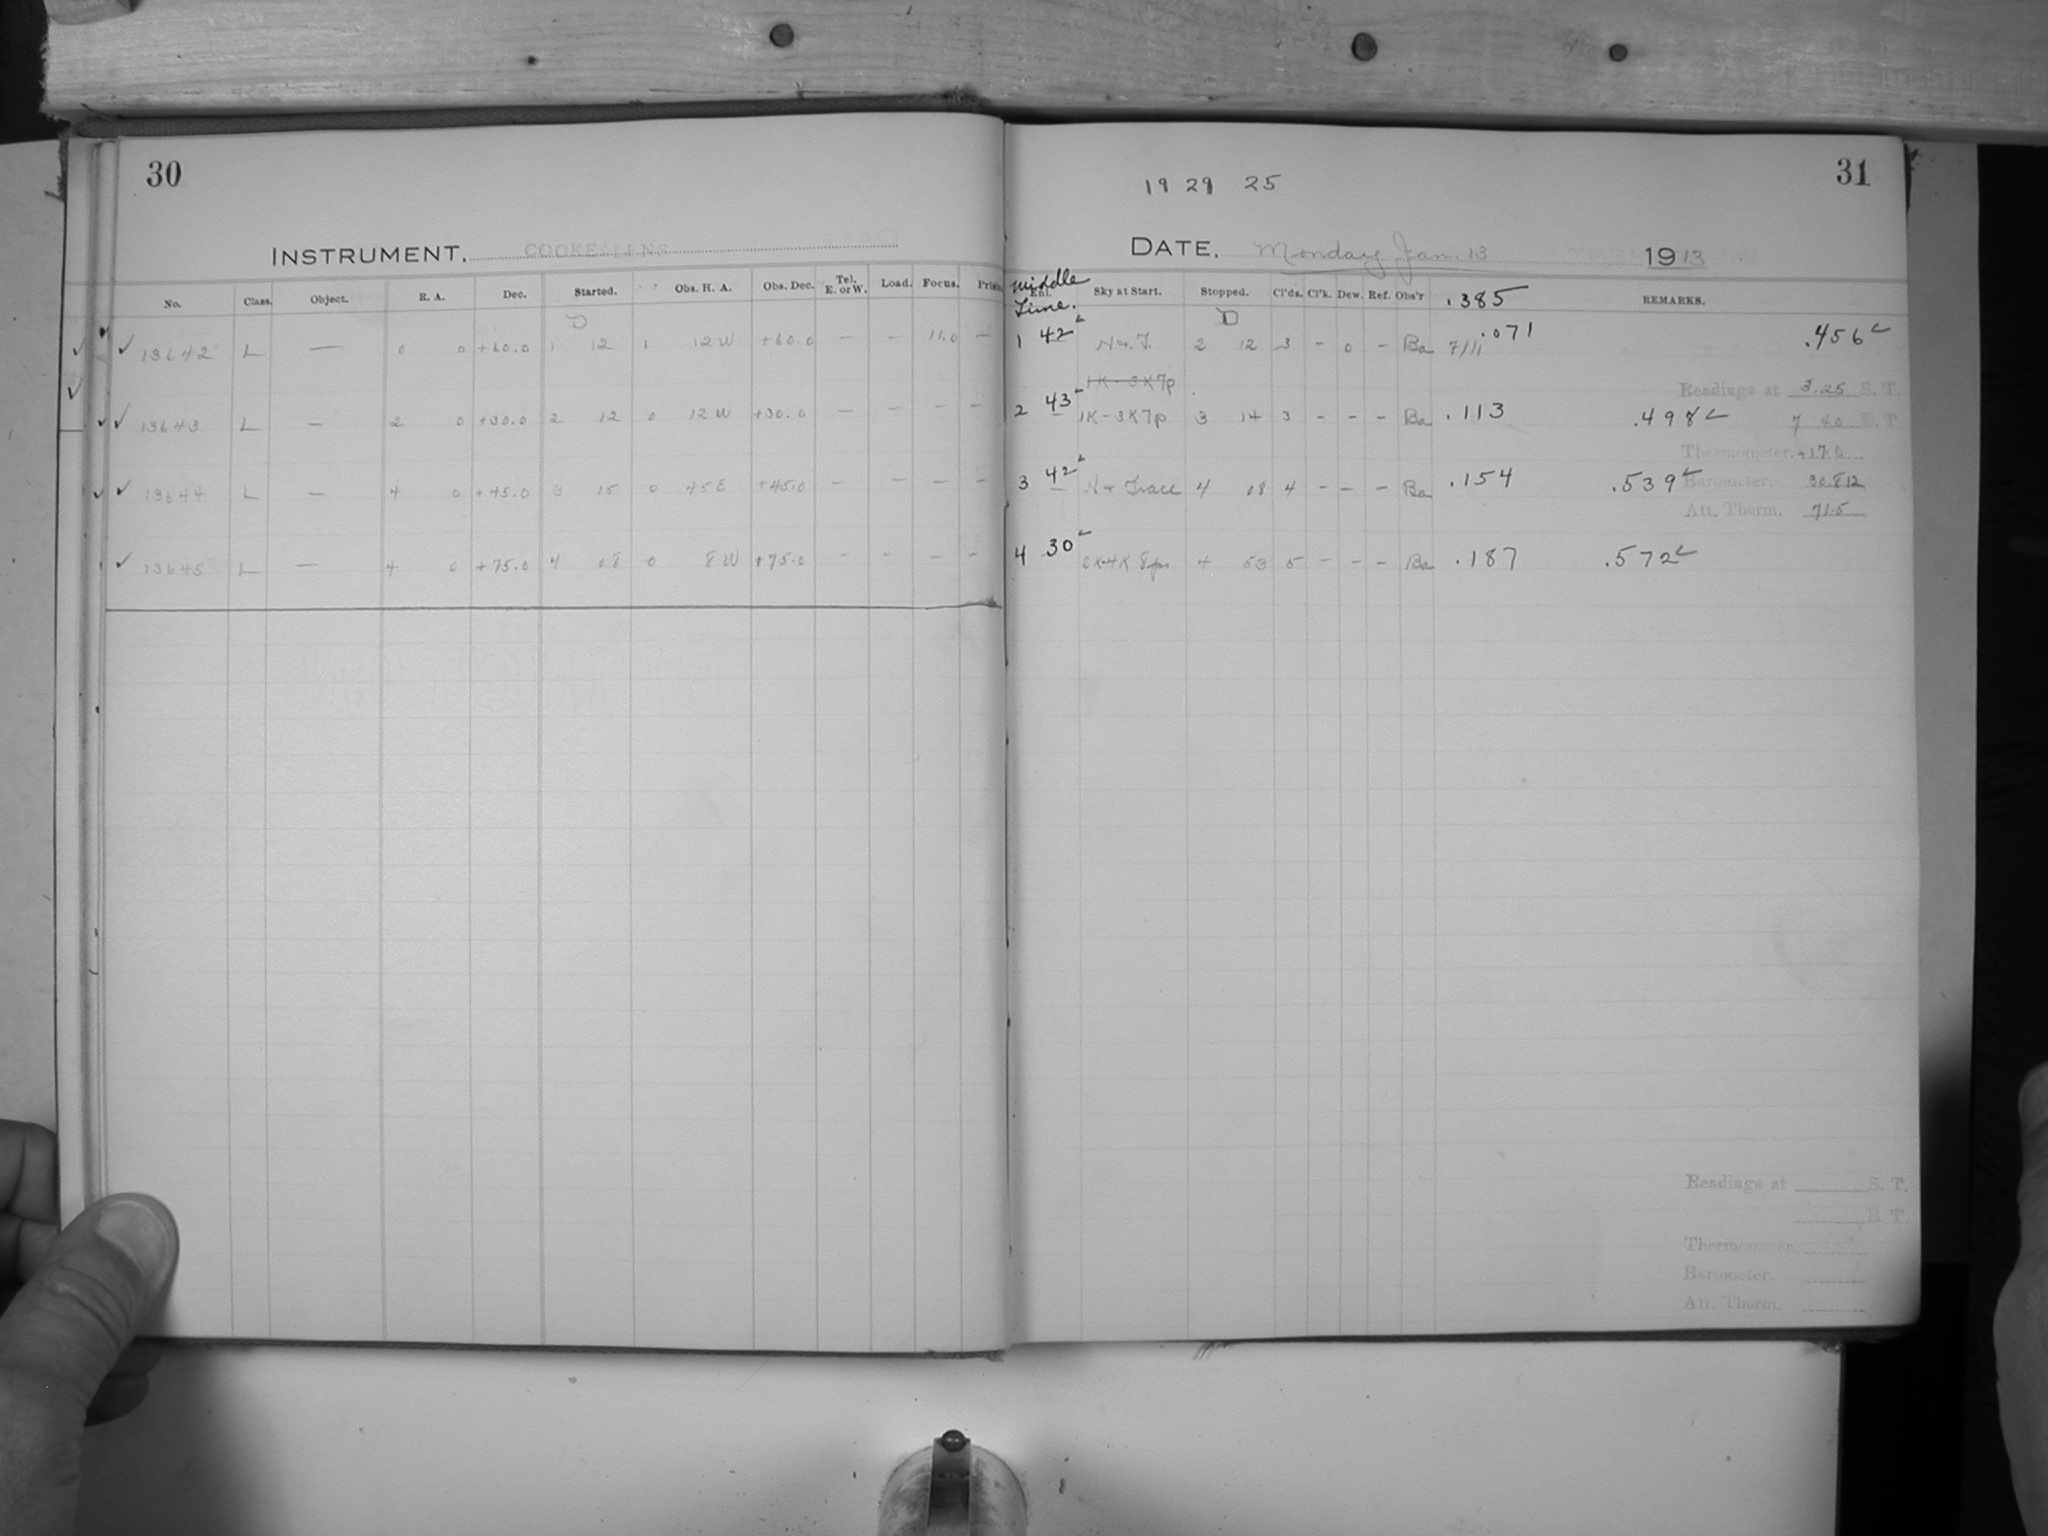 30
INSTRUMENT, COOKE LENS
No. Class. Object. R. A. Dec. Started. Obs. H. A. Obs. Dec. Tel. E. or W. Load. Focus. Prism
D
✓ ✓ 13642 L — 0 0 +60.0 1 12 1 12 W +60.0 — — 11.0 —
✓ ✓ 13643 L — 2 0 +30.0 2 12 0 12 W +30.0 — — — —
✓ ✓ 13644 L — 4 0 +45.0 3 15 0 45 E +45.0 — — — —
✓ 13645 L — 4 0 +75.0 4 08 0 8 W +75.0 — — — —
31
19 29 25
DATE, Monday Jan. 13 1913
Middle Time. Ent. Sky at Start. Stopped. Cl'ds. Cl'k. Dew. Ref. Obs'r .385 REMARKS.
D
1 42 N & T. 2 12 3 – 0 – Ba 7/11 .071 .456
1K-3K7p
Readings at 3.25 S. T.
2 43 1K-3K7p 3 14 3 – – – Ba .113 .498 7 40 E. T.
Thermometer. +17.0
3 42 N & Trace 4 08 4 – – – Ba .154 .539 Barometer. 30.812
Att. Therm. 71.5
4 30 4 53 5 – – – Ba .187 .572
Readings at S. T.
E. T.
Thermometer.
Barometer.
Att. Therm.